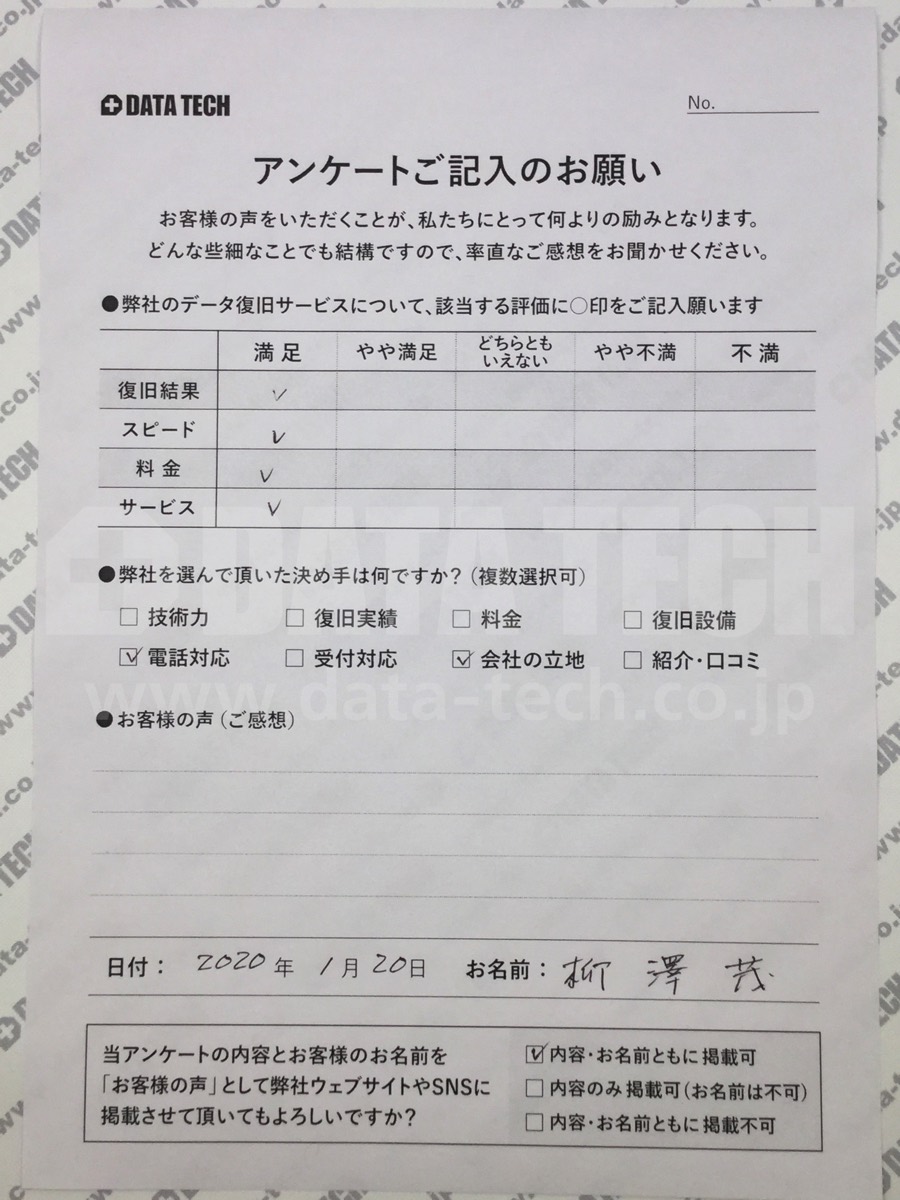 DATA TECH
No.
アンケートご記入のお願い
お客様の声をいただくことが、私たちにとって何よりの励みとなります。
どんな些細なことでも結構ですので、率直なご感想をお聞かせください。
●弊社のデータ復旧サービスについて、該当する評価に○印をご記入願います
満足 やや満足 どちらともいえない やや不満 不満
復旧結果 ✓
スピード ✓
料金 ✓
サービス ✓
●弊社を選んで頂いた決め手は何ですか?(複数選択可)
□ 技術力 □ 復旧実績 □ 料金 □ 復旧設備
☑ 電話対応 □ 受付対応 ☑ 会社の立地 □ 紹介・口コミ
●お客様の声(ご感想)
日付: 2020年 1月20日 お名前: 柳澤 茂
当アンケートの内容とお客様のお名前を
「お客様の声」として弊社ウェブサイトやSNSに
掲載させて頂いてもよろしいですか?
☑ 内容・お名前ともに掲載可
□ 内容のみ掲載可(お名前は不可)
□ 内容・お名前ともに掲載不可
DATA TECH
www.data-tech.co.jp